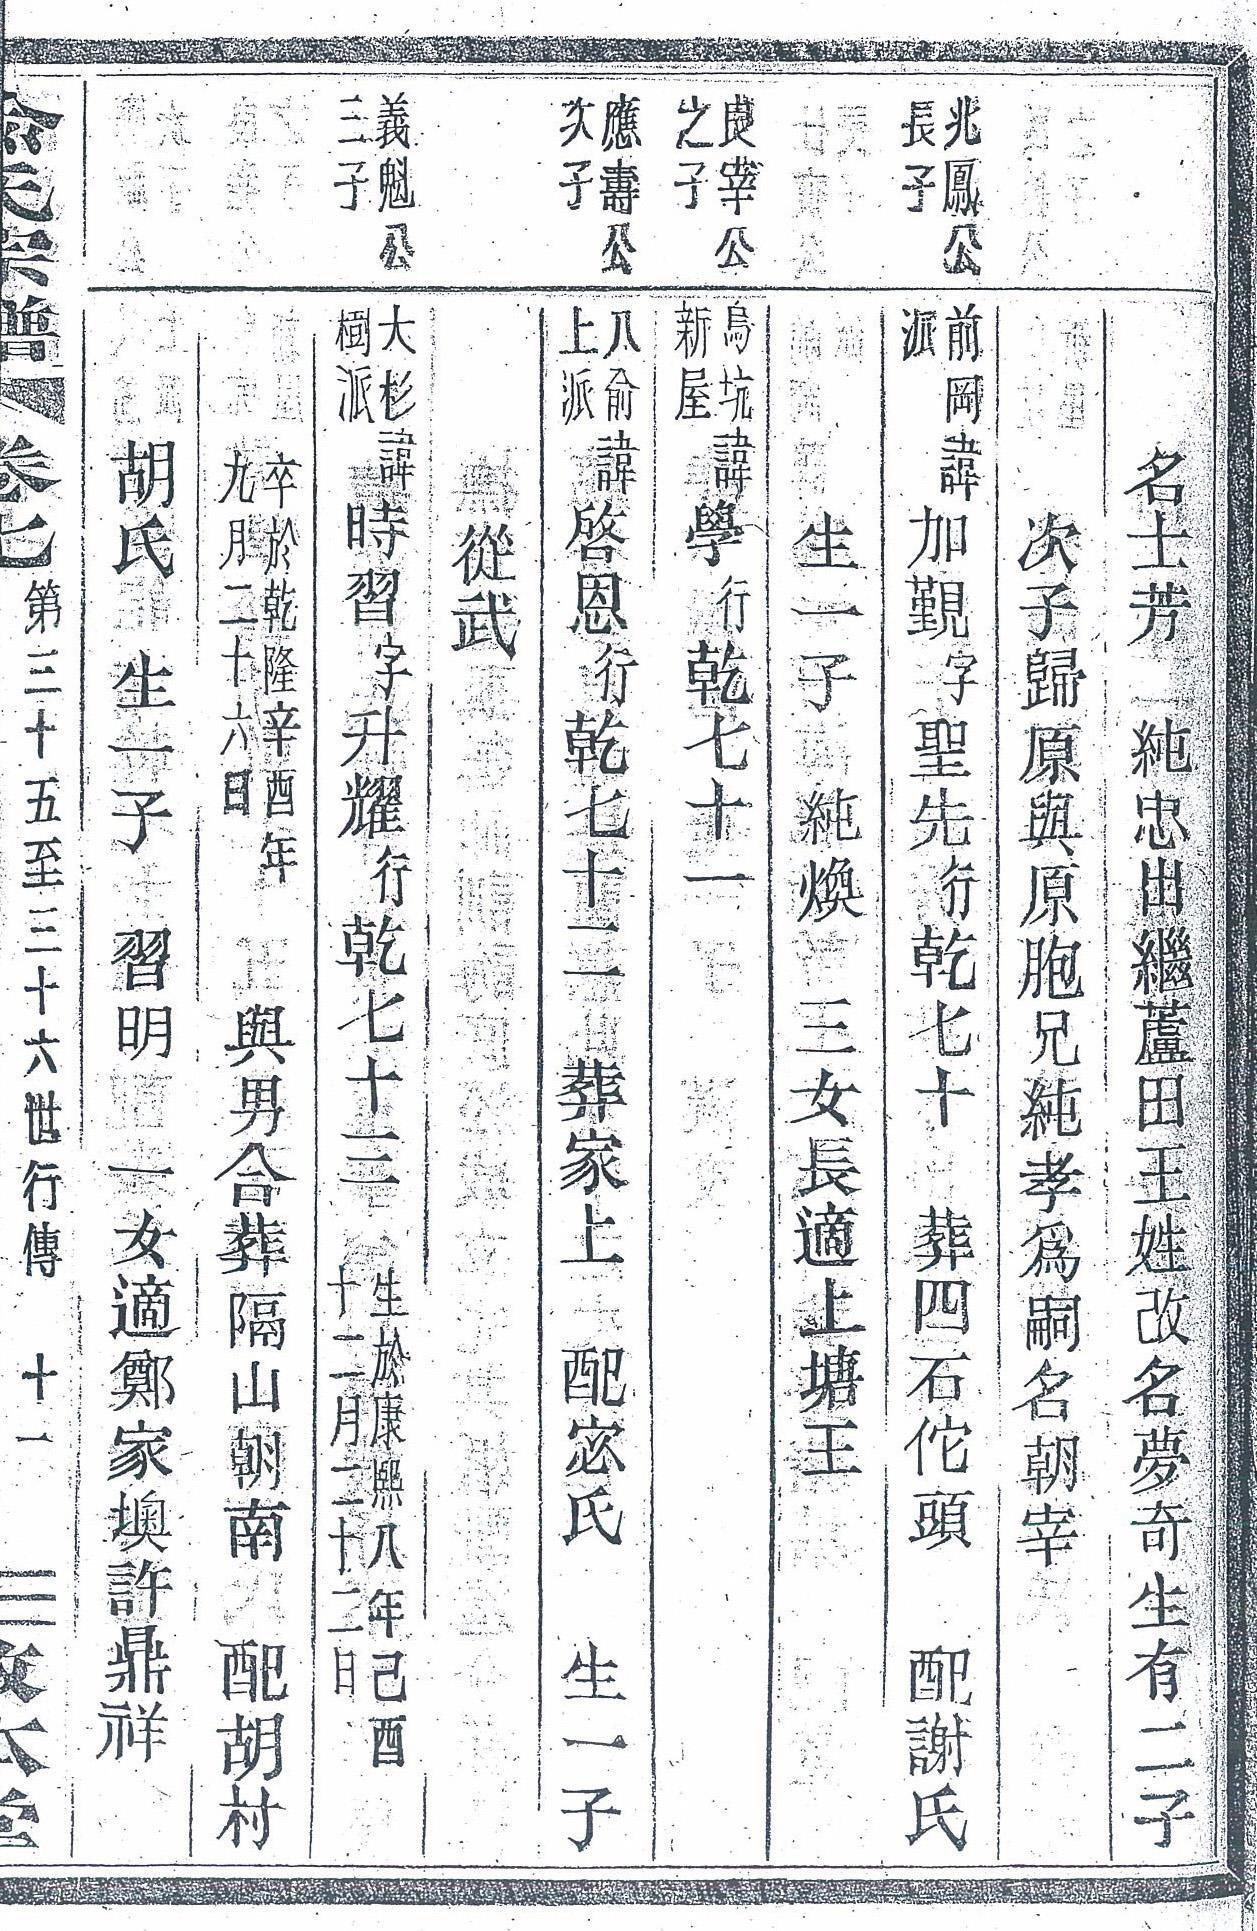 名士芳 純忠出繼蘆田王姓改名夢奇生有二子
次子歸原與原胞兄純孝爲嗣名朝宰
兆鳳公
長子
前岡
派
諱加覲字聖先行乾七十 葬四石佗頭 配謝氏
生一子 純煥 三女長適上塘王
良宰公
之子
烏坑
新屋
諱學行乾七十一
應壽公
次子
八俞
上派
諱啓恩行乾七十二 葬家上 配宓氏 生一子
從武
義魁公
三子
大杉
樹派
諱時習字升耀行乾七十三
生於康熙八年己酉
十二月二十二日
卒於乾隆辛酉年
九月二十六日
與男合葬隔山朝南 配胡村
胡氏 生一子 習明 一女適鄭家墺許鼎祥
俞氏宗譜 卷七 第三十五至三十六世行傳 十一 敦本堂